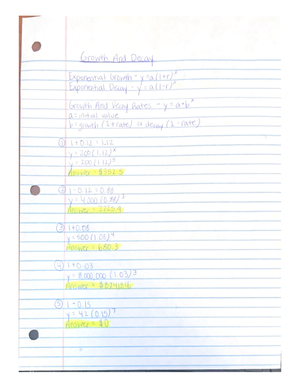 Growth And Decay
Exponential Growth - y = a(1+r)ˣ
Exponential Decay - y = a(1-r)ˣ
Growth And Decay Rates - y = a·bˣ
a = initial value
b = growth (1+rate) or decay (1-rate)
① 1+0.12 = 1.12
y = 200(1.12)
y = 200(1.12)
Answer = $352.5
② 1-0.12 = 0.88
y = 4,000(0.88)³
Answer =
③ 1+0.08
y = 500(1.08)⁴
Answer = 680.3
④ 1+0.03
y = 8,000,000(1.03)³
Answer =
⑤ 1-0.15
y = 42(0.15)³
Answer = $0